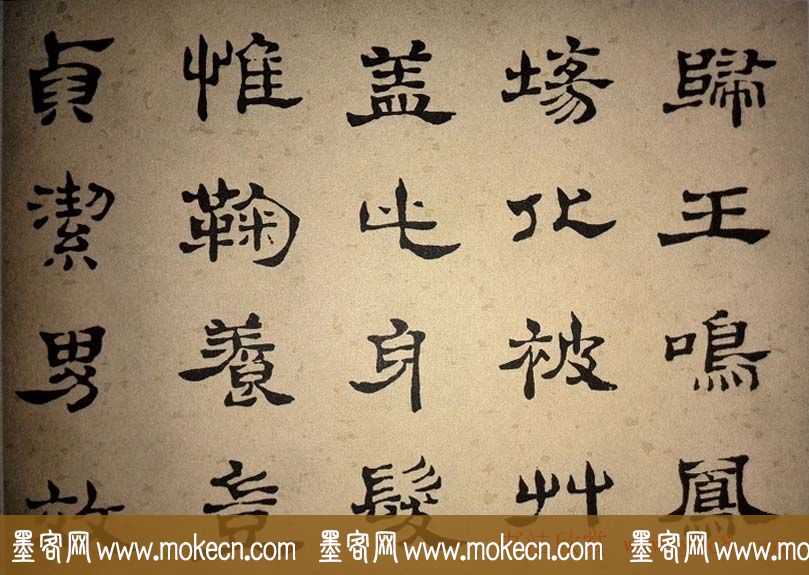 歸王鳴鳳
場化被艸
盖此身髮
惟鞠養豈
貞潔男效
墨客网 www.mokecn.com 墨客网 www.mokecn.com 墨客网 www.mokecn.com